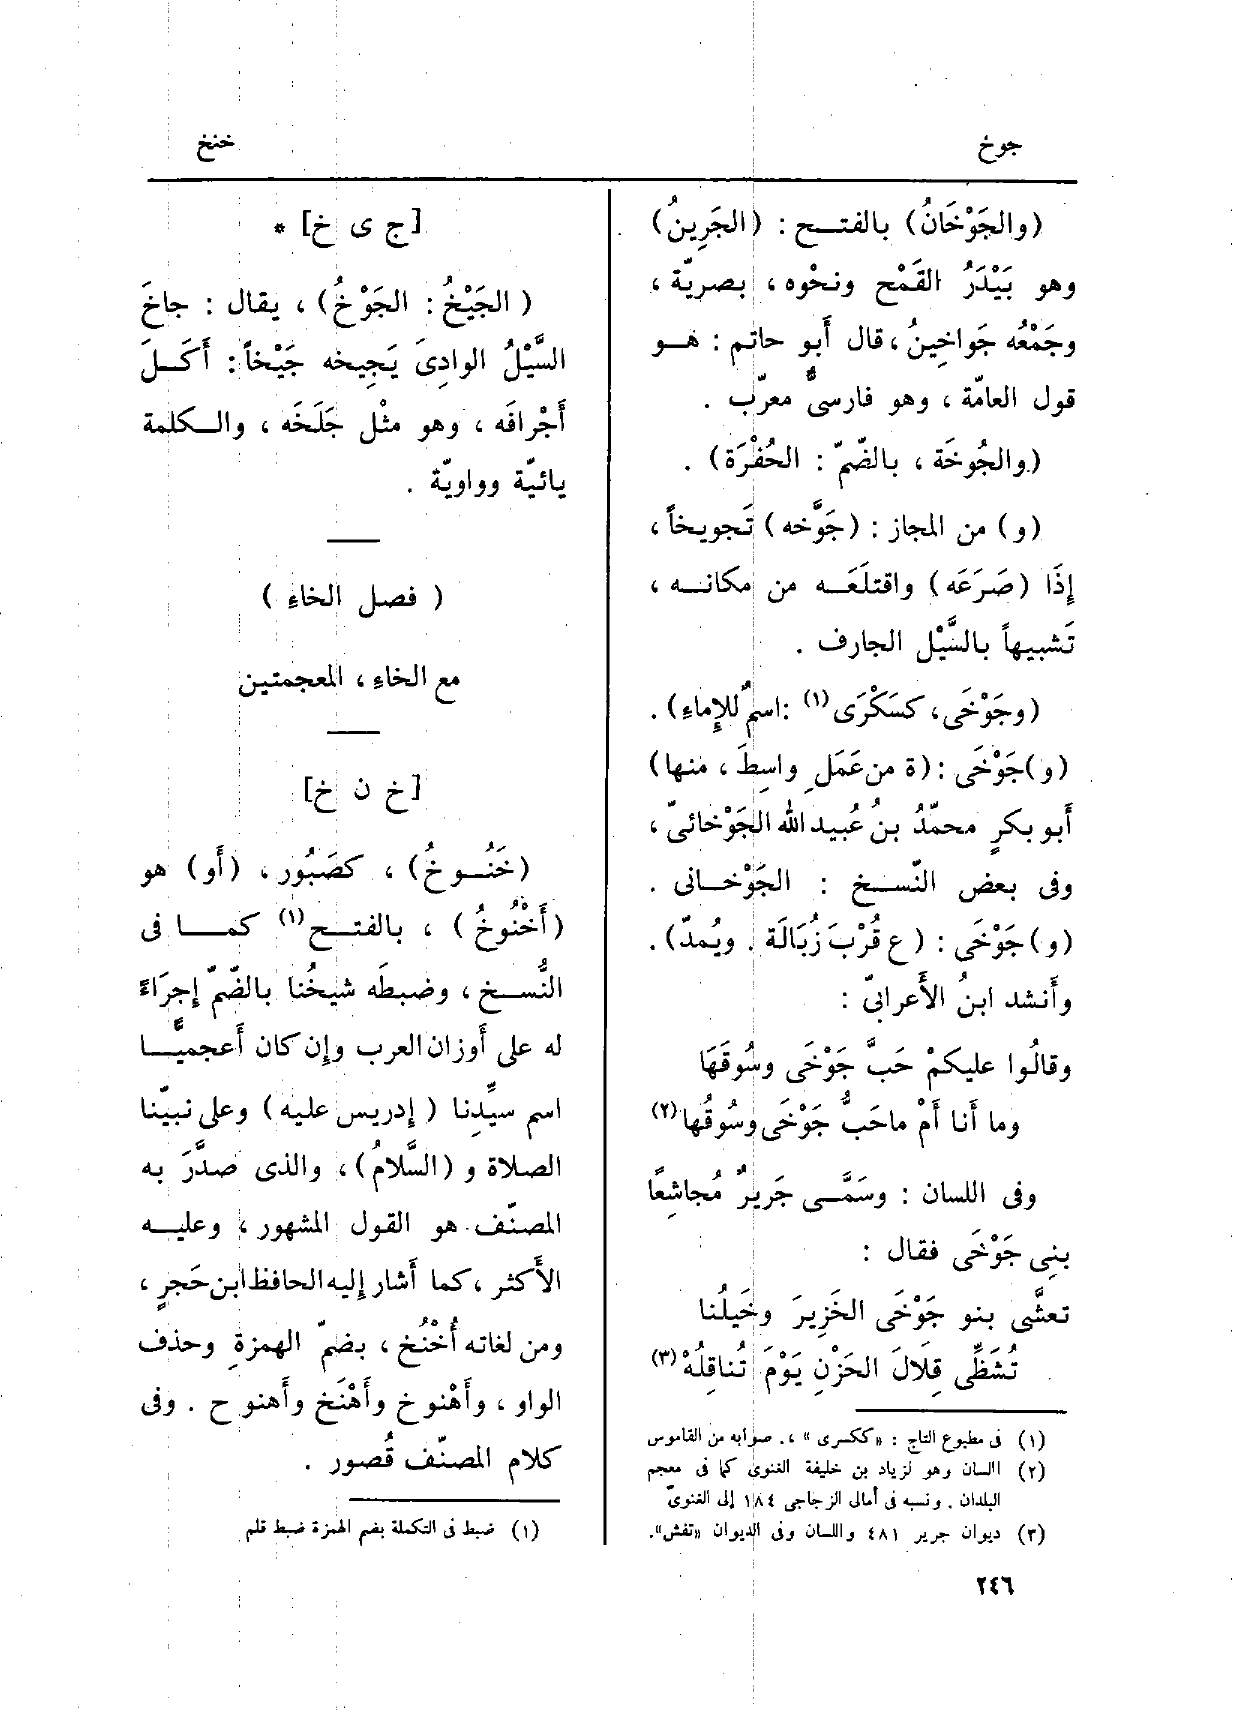 جوخ
خنخ
(والجَوْخَانُ) بالفتـح : (الجَرِينُ)
وهو بَيْدَرُ القَمْح ونحْوِه ، بصريّة ،
وجَمْعُه جَواخِينُ ، قال أَبو حاتم : هـو
قول العامّة ، وهو فارسىٌّ معرّب .
(والجُوخَة ، بالضّمّ : الحُفْرَة) .
(و) من المجاز : (جَوَّخه) تَجويخاً ،
إِذَا (صَرَعَه) واقتلَعَـه من مكانـه ،
تَشبيهاً بالسَّيْل الجارف .
(وجَوْخَى، كسَكْرَى (١) : اسمٌ للإِماءِ) .
(و) جَوْخَى : (ة من عَمَلِ واسِطَ ، منها)
أَبو بكرٍ محمّدُ بنُ عُبيد الله الجَوْخائىّ ،
وفى بعض النّسـخ : الجَوْخـانى .
(و) جَوْخَى : (ع قُرْبَ زُبَالَة . ويُمدّ) .
وأَنشد ابنُ الأَعرابىّ :
وقالُوا عليكمْ حَبَّ جَوْخَى وسُوقَهَا
وما أَنا أَمْ ماحَبُّ جَوْخَى وسُوقُها (٢)
وفى اللسان : وسَمَّـى جَريرٌ مُجاشِعًا
بنِى جَوْخَى فقال :
تعشَّى بنو جَوْخَى الخَزِيرَ وخَيلُنا
تُشَظِّى قِلالَ الحَزْنِ يَوْمَ تُناقِلُهْ (٣)
(١) فى مطبوع التاج : «ككسرى» ، صوابه من القاموس
(٢) اللسان وهو لزياد بن خليفة الغنوى كما فى معجم
البلدان . ونسبه فى أمالى الزجاجى ١٨٤ إلى الغنوىّ
(٣) ديوان جرير ٤٨١ واللسان وفى الديوان «تفش» .
[ج ى خ] *
(الجَيْخُ : الجَوْخُ) ، يقال : جاخَ
السَّيْلُ الوادِىَ يَجِيخه جَيْخاً : أَكَـلَ
أَجْرافَه ، وهو مثْل جَلَخَه ، والـكلمة
يائيّة وواويّة .
( فصل الخاءِ )
مع الخاءِ ، المعجمتين
[خ ن خ]
(خَنُـوخُ) ، كصَبُور ، (أَو) هو
(أَخْنُوخُ) ، بالفتـح (١) كمـا فى
النُّسـخ ، وضبطَه شيخُنا بالضّمّ إِجرَاءً
له على أَوزان العرب وإِن كان أَعجميًّـا
اسم سيِّدِنا (إِدريس عليه) وعلى نبيّنا
الصلاة و (السَّلامُ) ، والذى صدَّرَ به
المصنّف هو القول المشهور ، وعليـه
الأَكثر ، كما أَشار إِليه الحافظ ابن حَجرٍ ،
ومن لغاته أُخْنُخ ، بضمّ الهمزةِ وحذف
الواو ، وأَهْنوخ وأَهْنَخ وأَهنوح . وفى
كلام المصنّف قُصور .
(١) ضبط فى التكملة بضم الهمزة ضبط قلم
٢٤٦